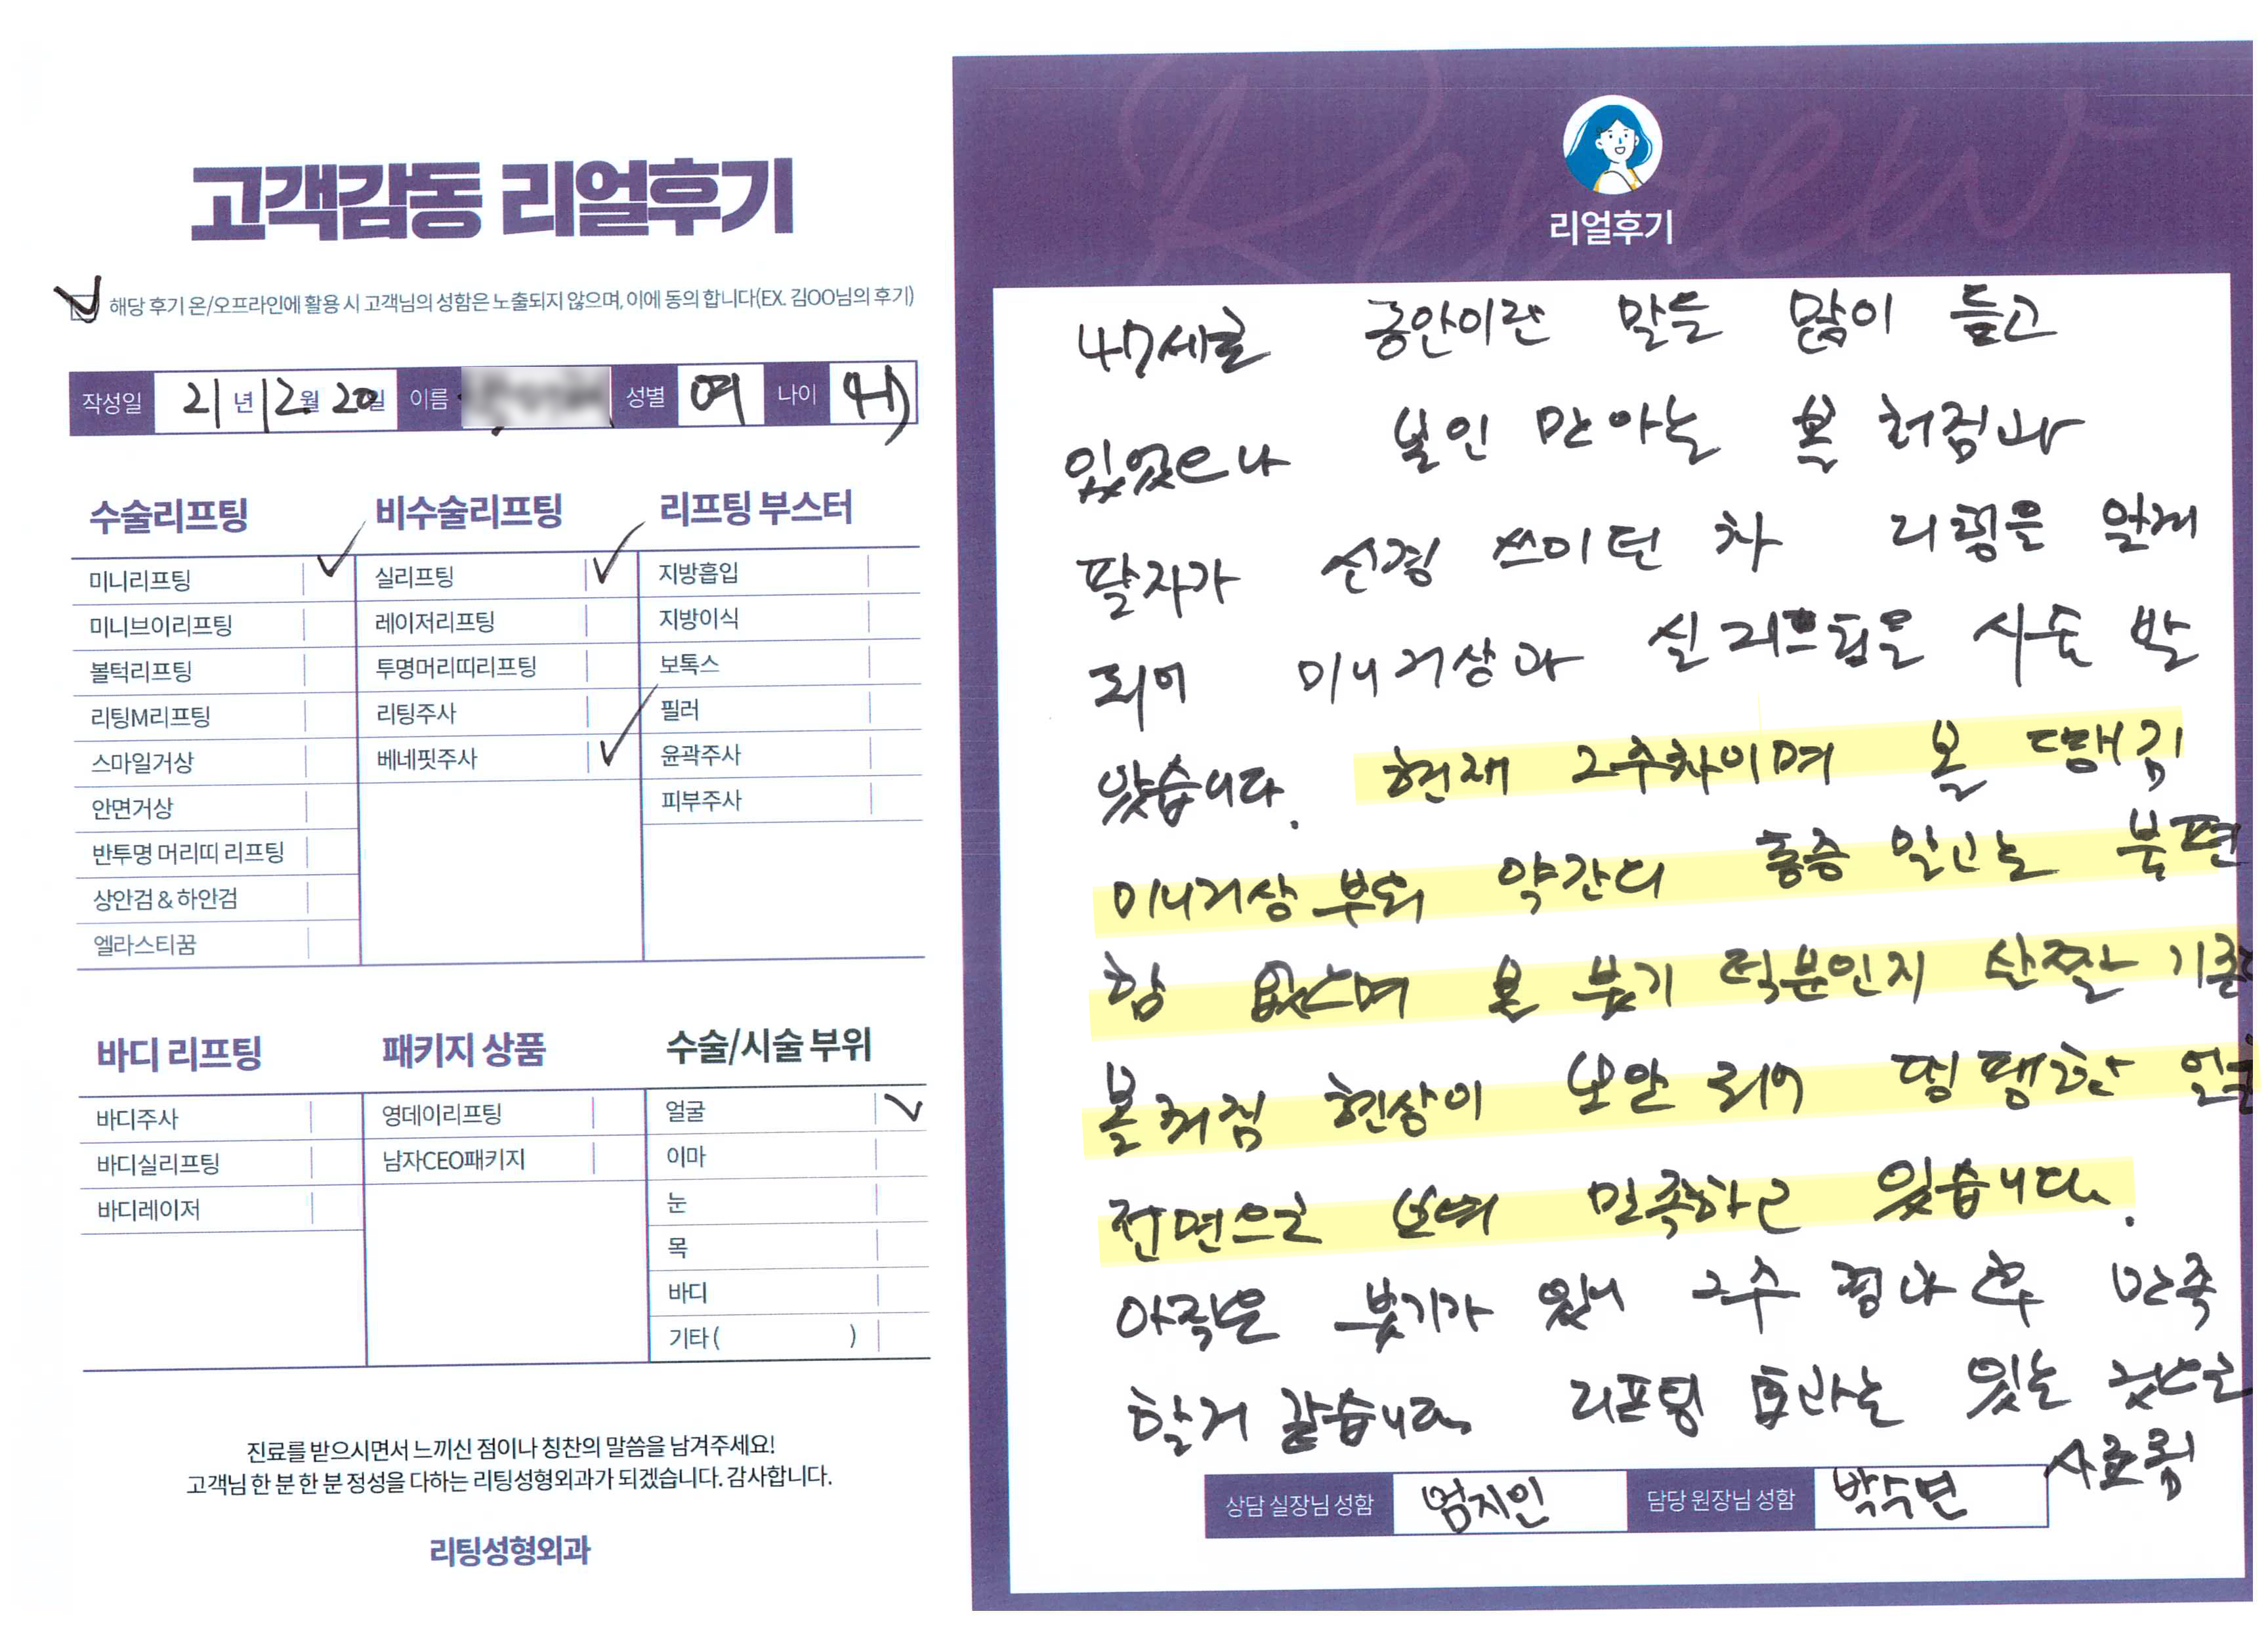 고객감동 리얼후기
해당 후기 온/오프라인에 활용 시 고객님의 성함은 노출되지 않으며, 이에 동의 합니다(EX. 김OO님의 후기)
작성일 21년 12월 20일 이름 성별 여 나이
수술리프팅
미니리프팅
미니브이리프팅
볼턱리프팅
리팅M리프팅
스마일거상
안면거상
반투명 머리띠 리프팅
상안검 & 하안검
엘라스티꿈
비수술리프팅
실리프팅
레이저리프팅
투명머리띠리프팅
리팅주사
베네핏주사
리프팅 부스터
지방흡입
지방이식
보톡스
필러
윤곽주사
피부주사
바디 리프팅
바디주사
바디실리프팅
바디레이저
패키지 상품
영데이리프팅
남자CEO패키지
수술/시술 부위
얼굴
이마
눈
목
바디
기타 ( )
진료를 받으시면서 느끼신 점이나 칭찬의 말씀을 남겨주세요!
고객님 한 분 한 분 정성을 다하는 리팅성형외과가 되겠습니다. 감사합니다.
리팅성형외과
Review
리얼후기
47세로 동안이란 말을 많이 듣고
있었으나 본인만 아는 볼 처짐과
팔자가 신경 쓰이던 차 리팅을 알게
되어 미니거상과 실리프팅을 시술 받
았습니다. 현재 2주차이며 볼 땡김
미니거상 부위 약간의 통증 말고는 불편
함 없으며 볼 붓기 덕분인지 살짝 기존
볼처짐 현상이 보완 되어 띵팽한 얼굴
전면으로 보여 만족하고 있습니다.
아직은 붓기가 있니 2주 경과 후 만족
할거 같습니다. 리프팅 효과는 있는 것으로
사료됨
상담 실장님 성함 엄지인 담당 원장님 성함